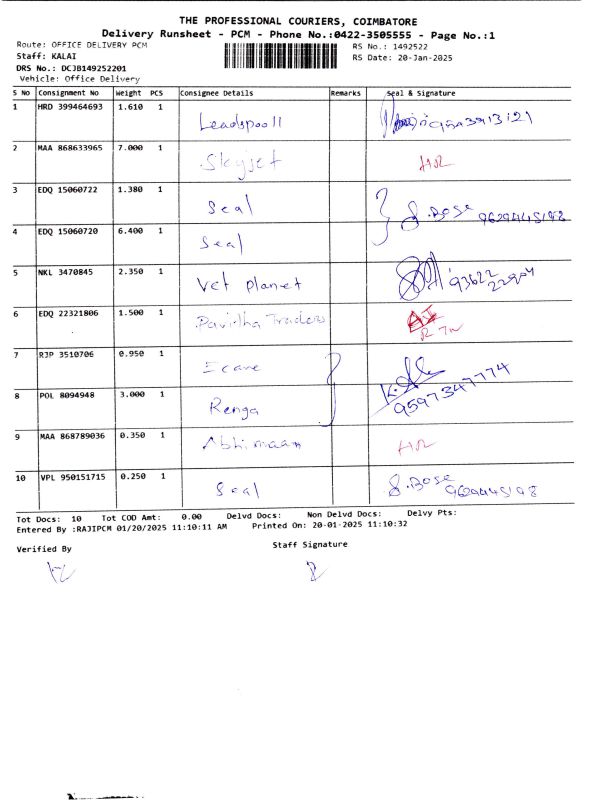 THE PROFESSIONAL COURIERS, COIMBATORE
Delivery Runsheet - PCM - Phone No.:0422-3505555 - Page No.:1
Route: OFFICE DELIVERY PCM RS No.: 1492522
Staff: KALAI RS Date: 20-Jan-2025
DRS No.: DCJB149252201
Vehicle: Office Delivery
S No Consignment No Weight PCS Consignee Details Remarks Seal & Signature
1 HRD 399464693 1.610 1
Leadspooll
2 MAA 868633965 7.000 1
Skyjet
3 EDQ 15060722 1.380 1
Seal S.Bose 9629445198
4 EDQ 15060720 6.400 1
Seal
5 NKL 3470845 2.350 1
Vet planet 93622 22904
6 EDQ 22321806 1.500 1
Pavitha Traders
7 RJP 3510706 0.950 1
Ecane
8 POL 8094948 3.000 1
Renga 9597347774
9 MAA 868789036 0.350 1
Abhimaan
10 VPL 950151715 0.250 1
Seal S.Bose 9629445198
Tot Docs: 10 Tot COD Amt: 0.00 Delvd Docs: Non Delvd Docs: Delvy Pts:
Entered By :RAJIPCM 01/20/2025 11:10:11 AM Printed On: 20-01-2025 11:10:32
Verified By Staff Signature